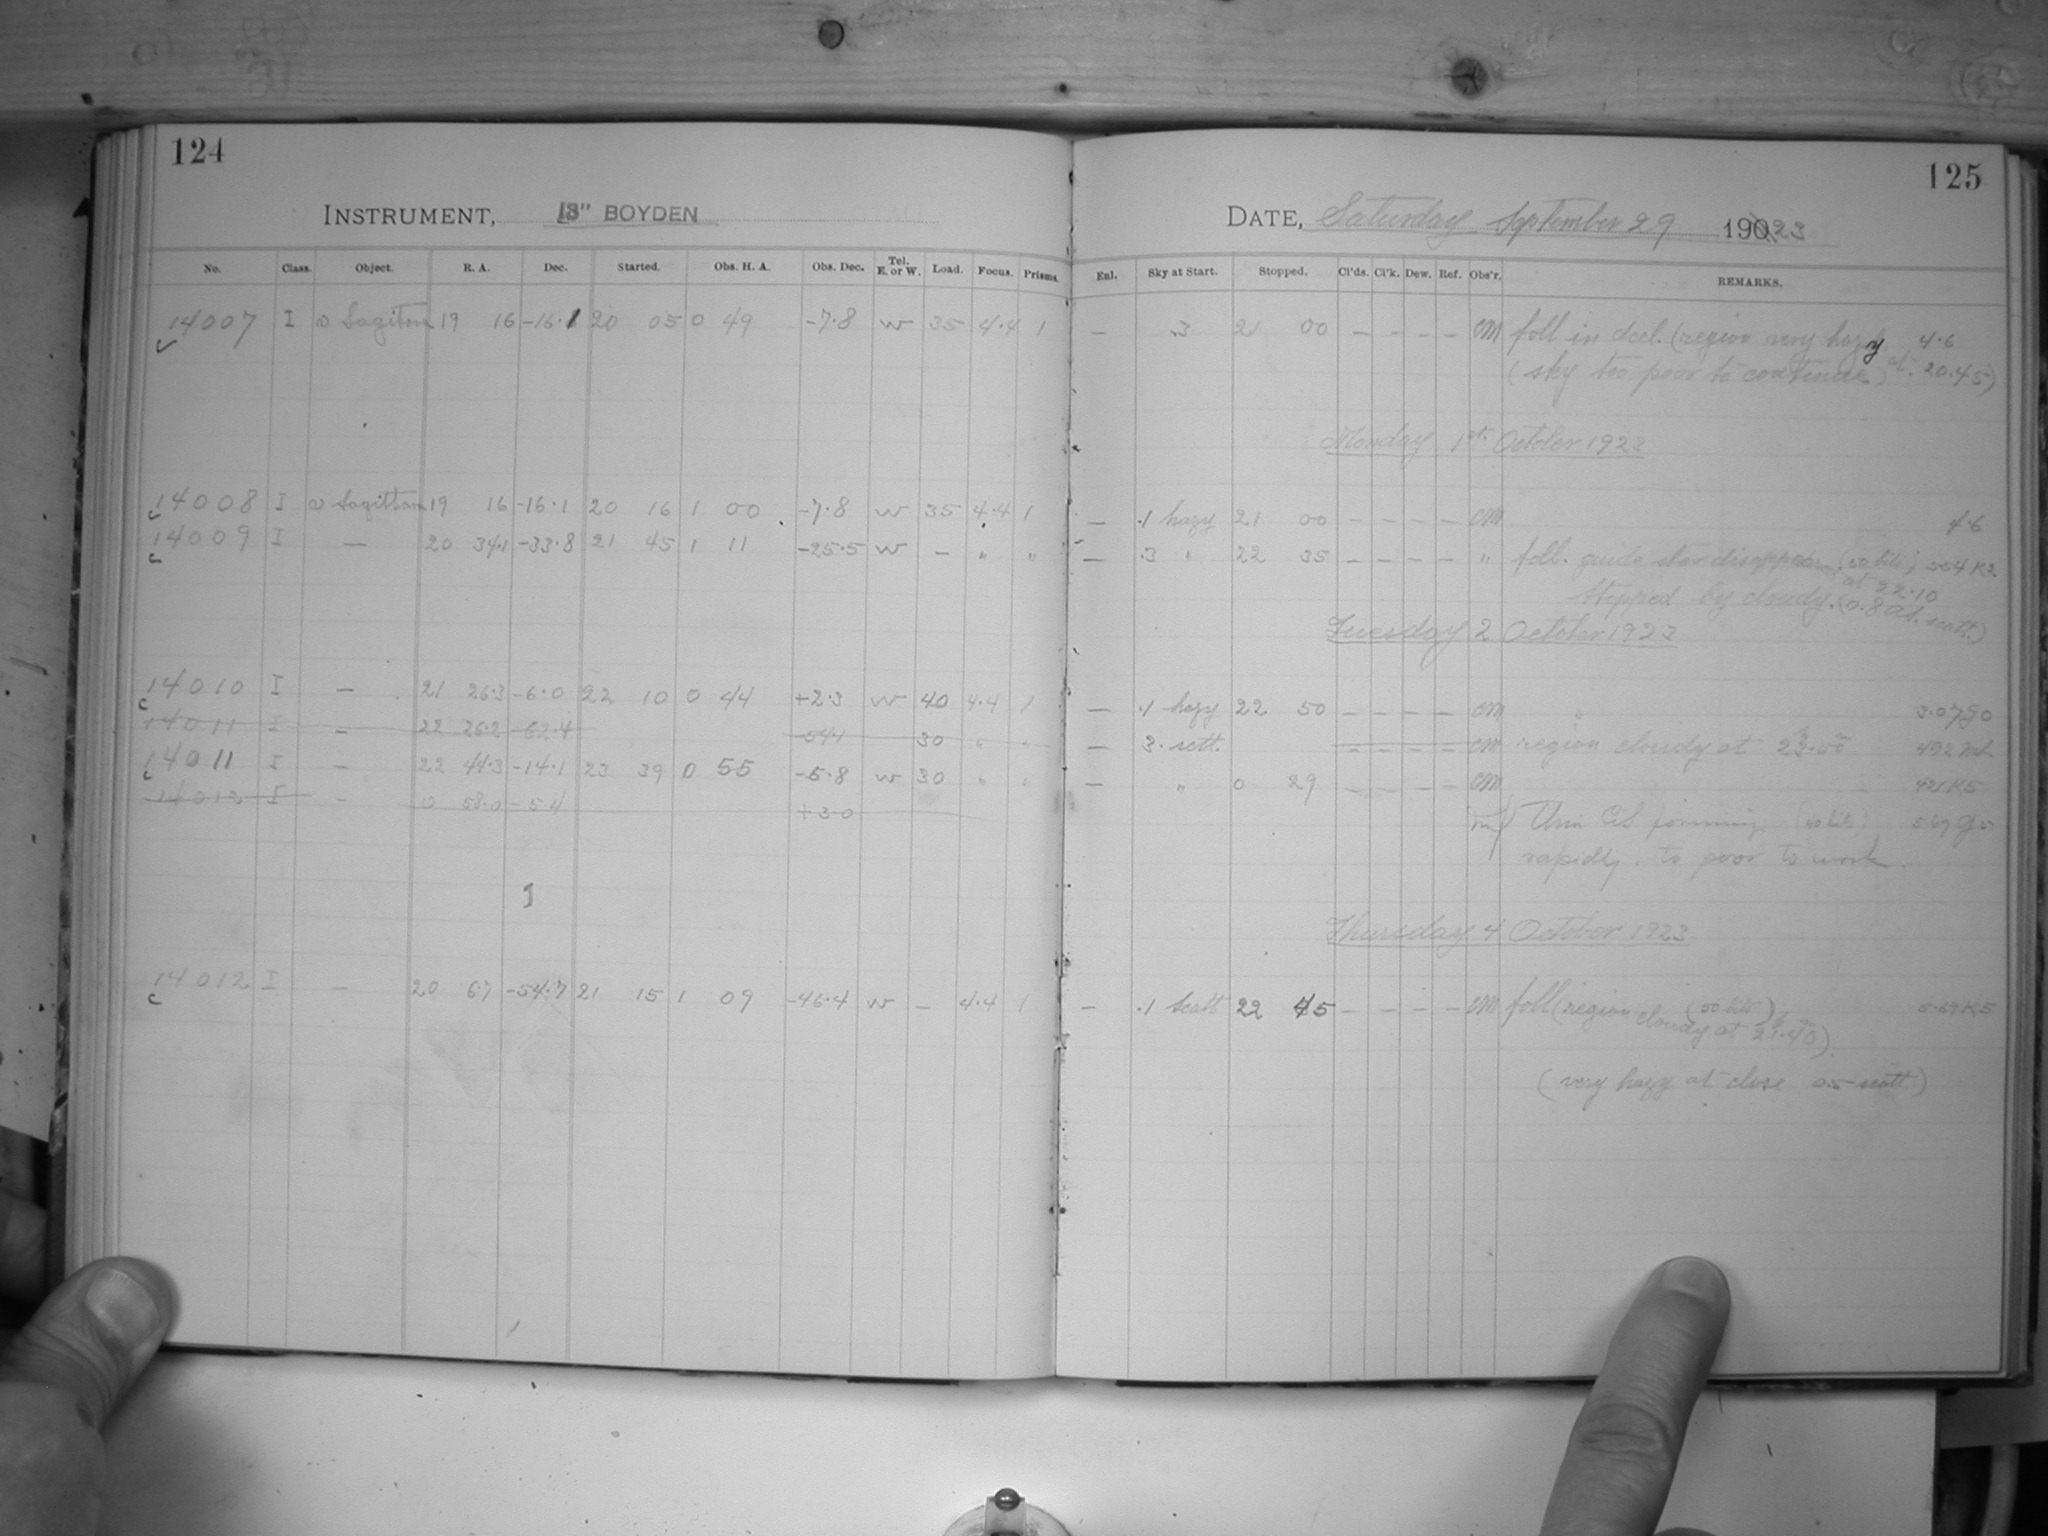 124
125
INSTRUMENT, 13" BOYDEN
DATE, Saturday September 29 1923
No. Class. Object. R. A. Dec. Started. Obs. H. A. Obs. Dec. Tel. E. or W. Load. Focus. Prisms. Enl. Sky at Start. Stopped. Cl'ds. Cl'k. Dew. Ref. Obs'r. REMARKS.
14007 I υ Sagittarii 19 16 -16.1 20 05 0 49 -7.8 W 35 4.4 1 — .3 21 00 — — — — CM foll in decl. (region very hazy at 20.45) 4.6
(sky too poor to continue)
Monday 1st October 1923
14008 I υ Sagittarii 19 16 -16.1 20 16 1 00 -7.8 W 35 4.4 1 — .1 hazy 21 00 — — — — CM 4.6
14009 I — 20 34.1 -33.8 21 45 1 11 -25.5 W — " " — .3 " 22 35 — — — — " foll. guide star at 22.10 5.54 K2
Stopped by cloudy. (0.8 scatt.)
Tuesday 2 October 1923
14010 I — 21 26.3 -6.0 22 10 0 44 +2.3 W 40 4.4 1 — .1 hazy 22 50 — — — — CM
14011 I — 22 26.2 -62.4 -54.1 30 " " — 3. sctt. — — — — CM region cloudy at 23h.00m
14011 I — 22 44.3 -14.1 23 39 0 55 -5.8 W 30 " " — " 0 29 — — — — CM
14012 I — 0 58.0 -5.4 +3.0 forming
rapidly. to poor to work
Thursday 4 October 1923
14012 I — 20 6.7 -54.7 21 15 1 09 -46.4 W — 4.4 1 — .1 scatt 22 45 — — — — CM foll (region cloudy at 21h.40m) 5.69 K5
(very hazy at close 0.5 scatt)